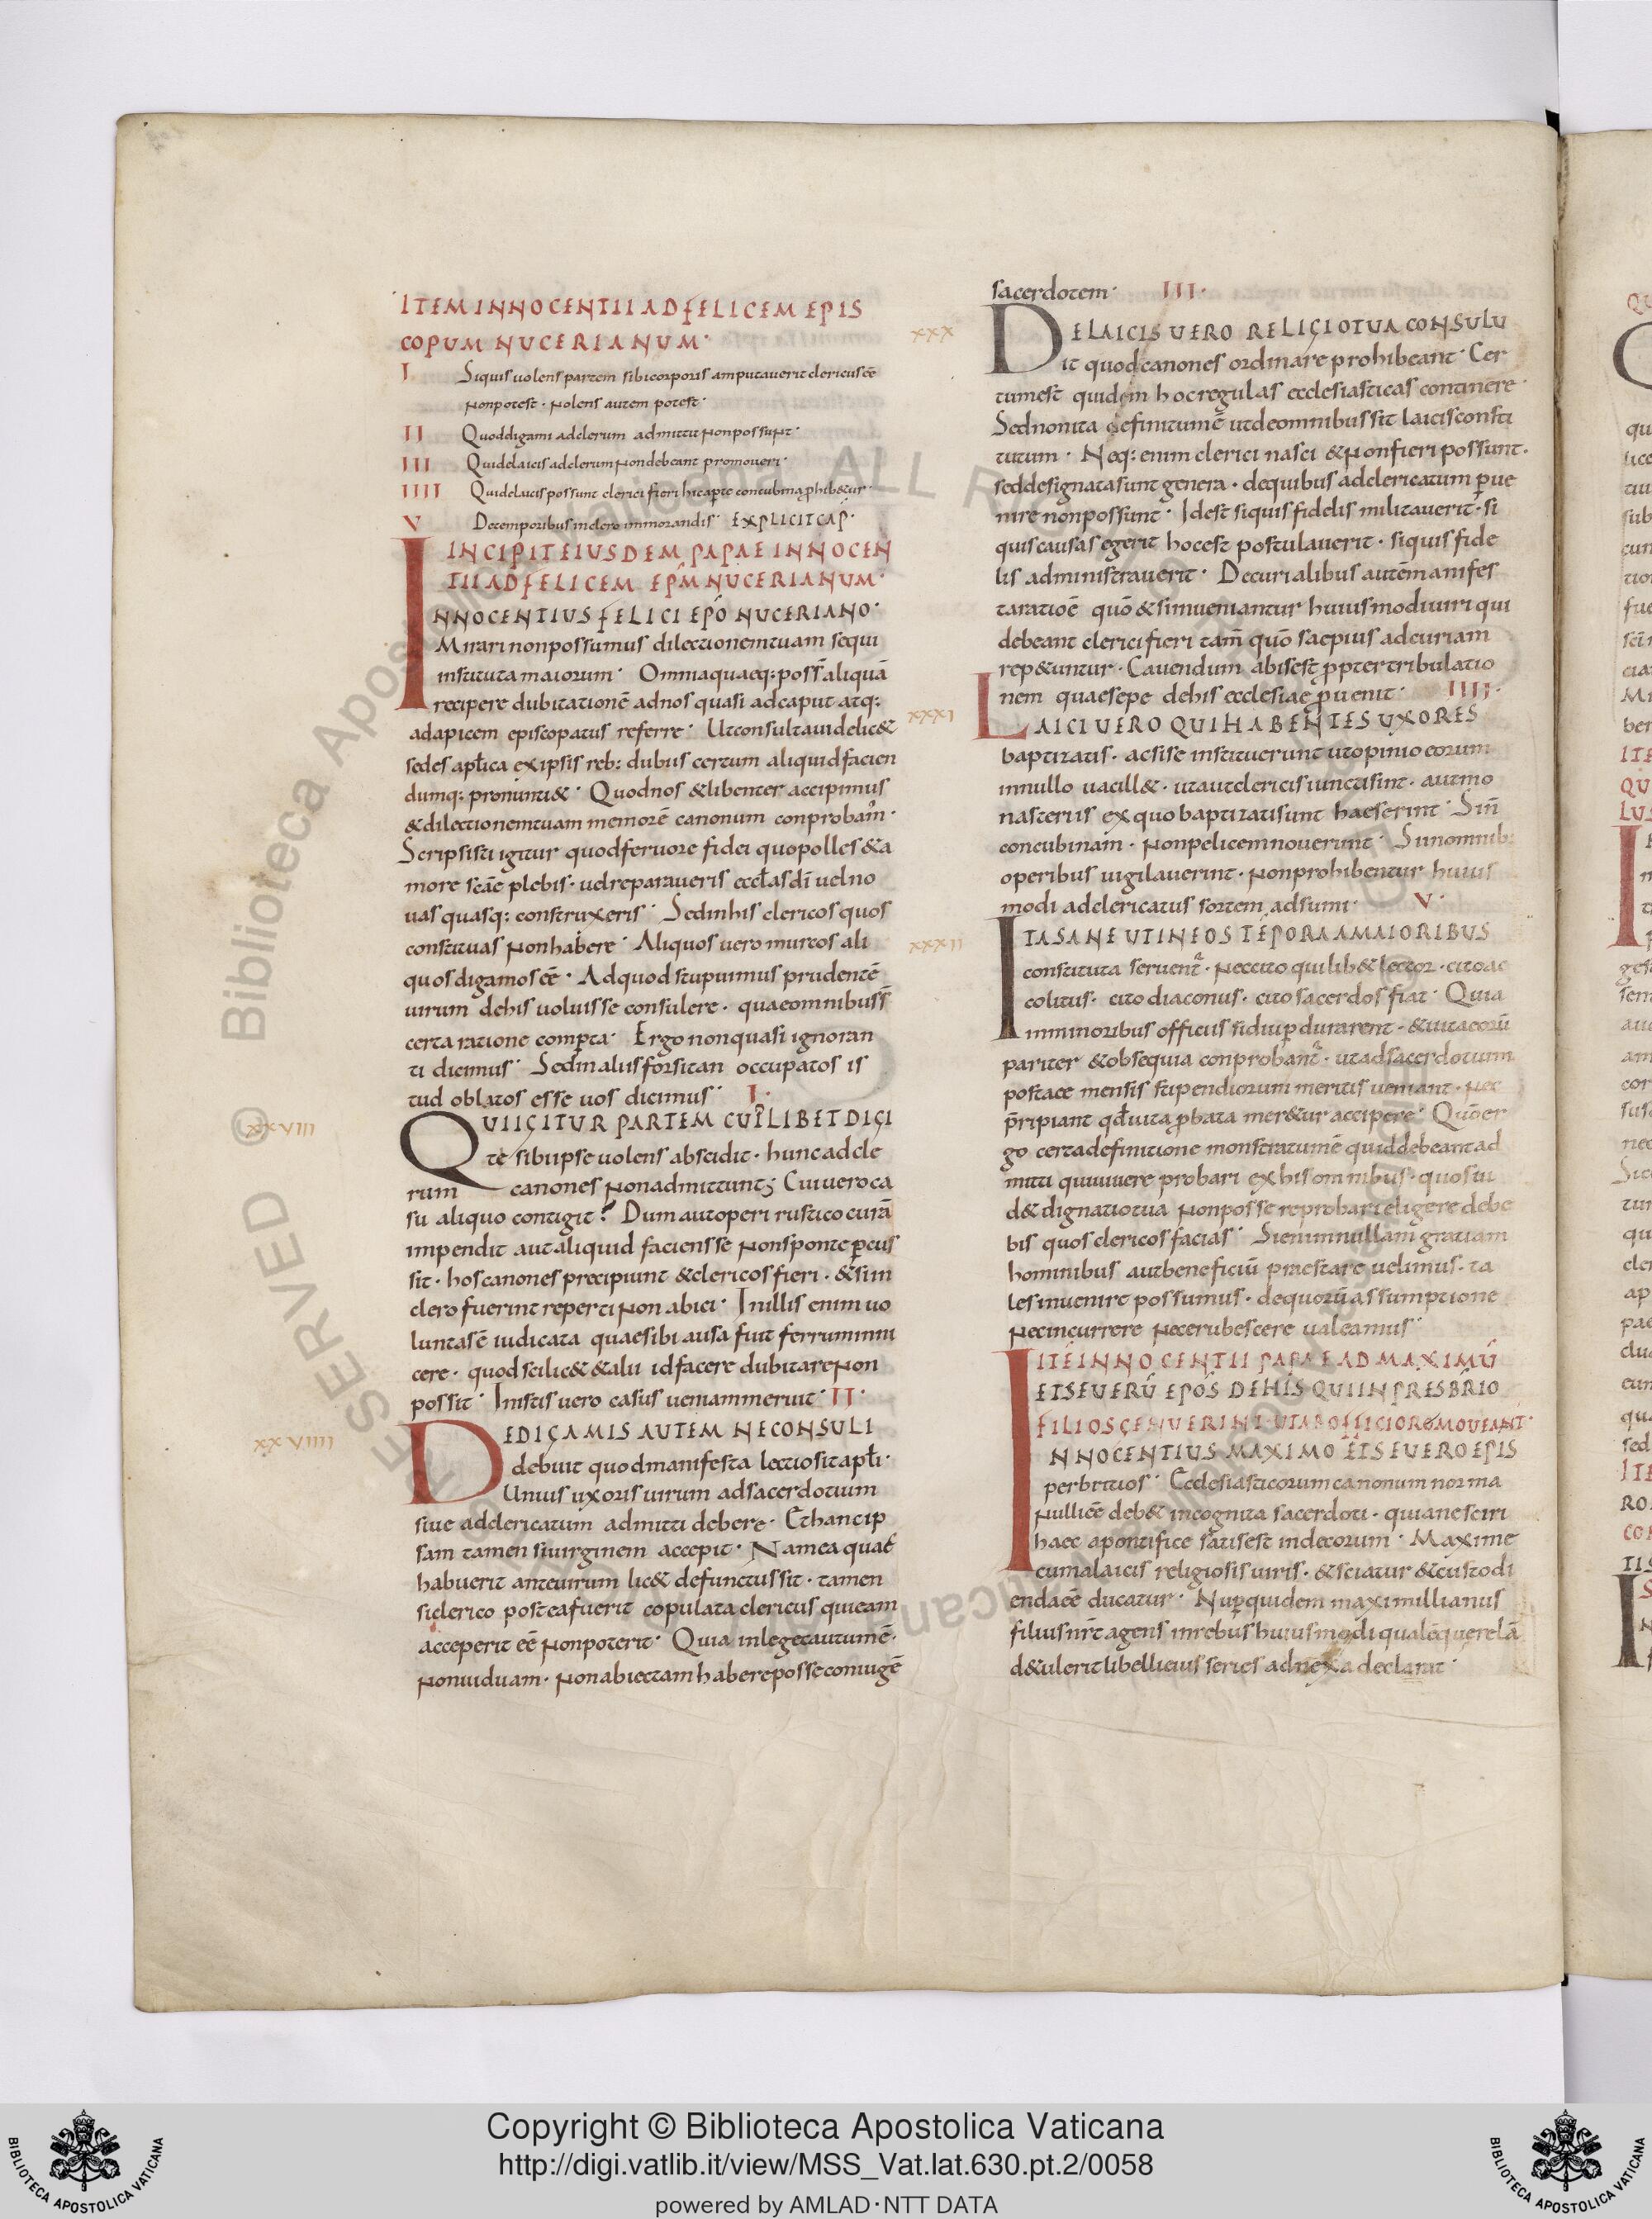 ITEM INNOCENTII AD FELICEM EPIS
COPUM NUCERIANUM·
I Siquis uolens partem sibi corporis amputauerit clericus eē
non potest· nolens autem potest·
II Quod digami ad clerum admitti non possunt·
III Qui de laicis ad clerum non debeant promoueri·
IIII Qui de laicis possunt clerici fieri hic aperte concubina prohibetur·
V De temporibus in clero immorandis· EXPLICIT CAP·
INCIPIT EIUSDEM PAPAE INNOCEN
TII AD FELICEM EPM̄ NUCERIANUM·
INNOCENTIUS FELICI EPŌ NUCERIANO·
Mirari non possumus dilectionem tuam sequi
instituta maiorum· Omnia quaeq: poss̄ aliquā
recipere dubitationē ad nos quasi ad caput atq:
ad apicem episcopatus referre· Ut consulta uidelic&
sedes apłica ex ipsis reb: dubiis certum aliquid facien
dumq: pronunti&· Quod nos & libenter accipimus
& dilectionem tuam memorē canonum conprobam·
Scripsisti igitur quod feruore fidei quo polles & a
more scāe plebis· uel reparaueris eccłas dī uel no
uas quasq: construxeris· Sed in his clericos quos
constituas non habere· Aliquos uero murcos ali
quos digamos eē· Ad quod stupuimus prudentē
uirum de his uoluisse consulere· quae omnibus s̄
certa ratione comp̱ta· Ergo non quasi ignoran
ti dicimus· Sed in aliis forsitan occupatos is
tud oblatos esse uos dicimus· I·
XXVIII QUI IGITUR PARTEM CUI᷎LIBET DIGI
tē sibi ipse uolens abscidit· hunc ad cle
rum canones non admittunt; Cui uero ca
su aliquo contigit? Dum aut operi rustico curā
impendit aut aliquid faciens se non sponte p̱cus
sit· hos canones precipiunt & clericos fieri· & si in
clero fuerint reperti non abici· In illis enim uo
luntas ē iudicata quae sibi ausa fuit ferrum inni
cere· quod scilic& & alii id facere dubitare non
possit· In istis uero casus ueniam meruit· II·
XXVIIII DE DIGAMIS AUTEM NE CONSULI
debuit quod manifesta lectio sit apłi·
Unius uxoris uirum ad sacerdotium
siue ad clericatum admitti debere· Et hanc ip
sam tamen si uirginem accepit· Nam ea quae
habuerit ante uirum lic& defunctus sit· tamen
si clerico postea fuerit copulata clericus qui eam
acceperit eē non poterit· Quia in lege cautum ē·
Non uiduam· non abiectam habere posse coniugē
sacerdotem· III·
XXX DE LAICIS UERO RELIGIO TUA CONSULU
it quod canones ordinare prohibeant· Cer
tum est quidem hoc regulas ecclesiasticas continere·
Sed non ita definitum ē ut de omnibus sit laicis consti
tutum· Neq: enim clerici nasci & non fieri possunt·
sed designata sunt genera· de quibus ad clericatum p̱ue
nire non possunt· Id est si quis fidelis militauerit· si
quis causas egerit hoc est postulauerit· si quis fide
lis administrauerit· De curialibus autē manifes
ta ratio ē quō & si inueniantur huiusmodi uiri qui
debeant clerici fieri tam̄ quō saepius ad curiam
rep&untur· Cauendum ab is est p̱pter tribulatio
nem quae sepe de his ecclesiae p̱uenit· IIII·
XXXI LAICI UERO QUI HABENTES UXORES
baptizatis· ac si se instituerunt ut opinio eorum
in nullo uacill&· ut aut clericis iuncti sint· aut mo
nasteriis ex quo baptizati sunt haeserint· Si n̄
concubinam· non pelicem nouerint· Si in omnib:
operibus uigilauerint· non prohibentur huius
modi ad clericatus sortem adsumi· V·
XXXII ITA SANE UT IN EOS TĒPORA A MAIORIBUS
constituta seruent᷎· Nec cito quilib& lector· cito ac
colitus· cito diaconus· cito sacerdos fiat· Quia
in minoribus officiis si diu p̱durarent· & uita eorū
pariter & obsequia conprobant᷎· ut ad sacerdotium
postace mensis stipendiorum meritis ueniant· nec
p̄ripiant qđ uita p̱bata mer&ur accipere· Quō er
go certa definitione monstratum ē qui debeant ad
mitti qui uiuere probari ex his omnibus· quos ui
d& dignatio tua non posse reprobari eligere debe
bis quos clericos facias· Si enim nullam gratiam
hominibus aut beneficiū praestare uelimus· ta
les inuenire possumus· de quorū assumptione
nec incurrere nec erubescere ualeamus·
ITĒ INNOCENTII PAPAE AD MAXIMŪ
ET SEUERŪ EPŌS DE HIS QUI IN PRESBRIO
FILIOS GENUERINT UT AB OFFICIO REMOUEANT·
INNOCENTIUS MAXIMO ET SEUERO EPIS
per brittios· Ecclesiasticorum canonum norma
nulli eē deb& incognita sacerdoti· quia nesciri
haec a pontifice satis est indecorum· Maxime
cum a laicis religiosis uiris· & sciatur & custodi
enda eē ducatur· Nup̱ quidem maximillianus
filius nr̄ agens in rebus huiusmodi qualē querelā
d&ulerit libelli eius series adnexa declarat·
Copyright © Biblioteca Apostolica Vaticana
http://digi.vatlib.it/view/MSS_Vat.lat.630.pt.2/0058
powered by AMLAD·NTT DATA
BIBLIOTECA APOSTOLICA VATICANA
BIBLIOTECA APOSTOLICA VATICANA